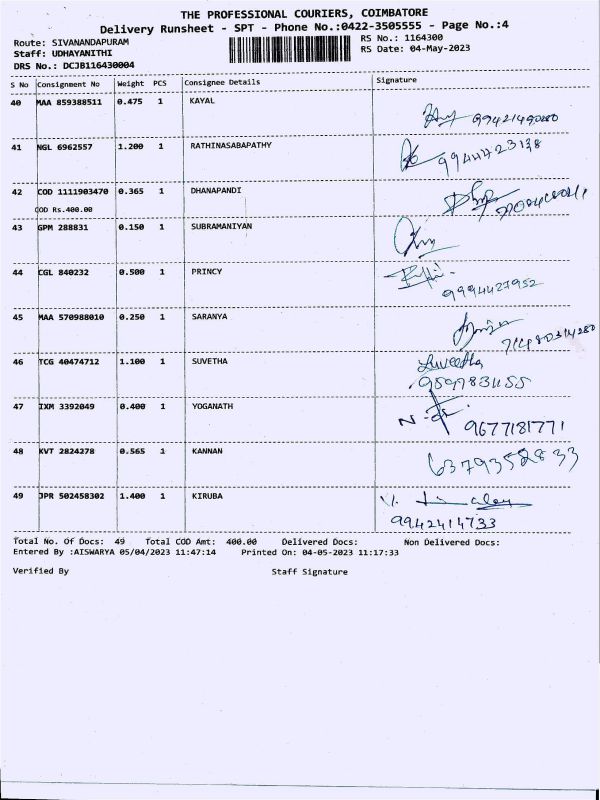 THE PROFESSIONAL COURIERS, COIMBATORE
Delivery Runsheet - SPT - Phone No.:0422-3505555 - Page No.:4
Route: SIVANANDAPURAM RS No.: 1164300
Staff: UDHAYANITHI RS Date: 04-May-2023
DRS No.: DCJB116430004
S No Consignment No Weight PCS Consignee Details Signature
40 MAA 859388511 0.475 1 KAYAL
9942149080
41 NGL 6962557 1.200 1 RATHINASABAPATHY
9944723138
42 COD 1111903470 0.365 1 DHANAPANDI
COD Rs.400.00
43 GPM 288831 0.150 1 SUBRAMANIYAN
44 CGL 840232 0.500 1 PRINCY
9994427952
45 MAA 570988010 0.250 1 SARANYA
46 TCG 40474712 1.100 1 SUVETHA Suveetha
9597831155
47 IXM 3392049 0.400 1 YOGANATH
9677181771
48 KVT 2824278 0.565 1 KANNAN 6379352833
49 JPR 502458302 1.400 1 KIRUBA
9942414733
Total No. Of Docs: 49 Total COD Amt: 400.00 Delivered Docs: Non Delivered Docs:
Entered By :AISWARYA 05/04/2023 11:47:14 Printed On: 04-05-2023 11:17:33
Verified By Staff Signature